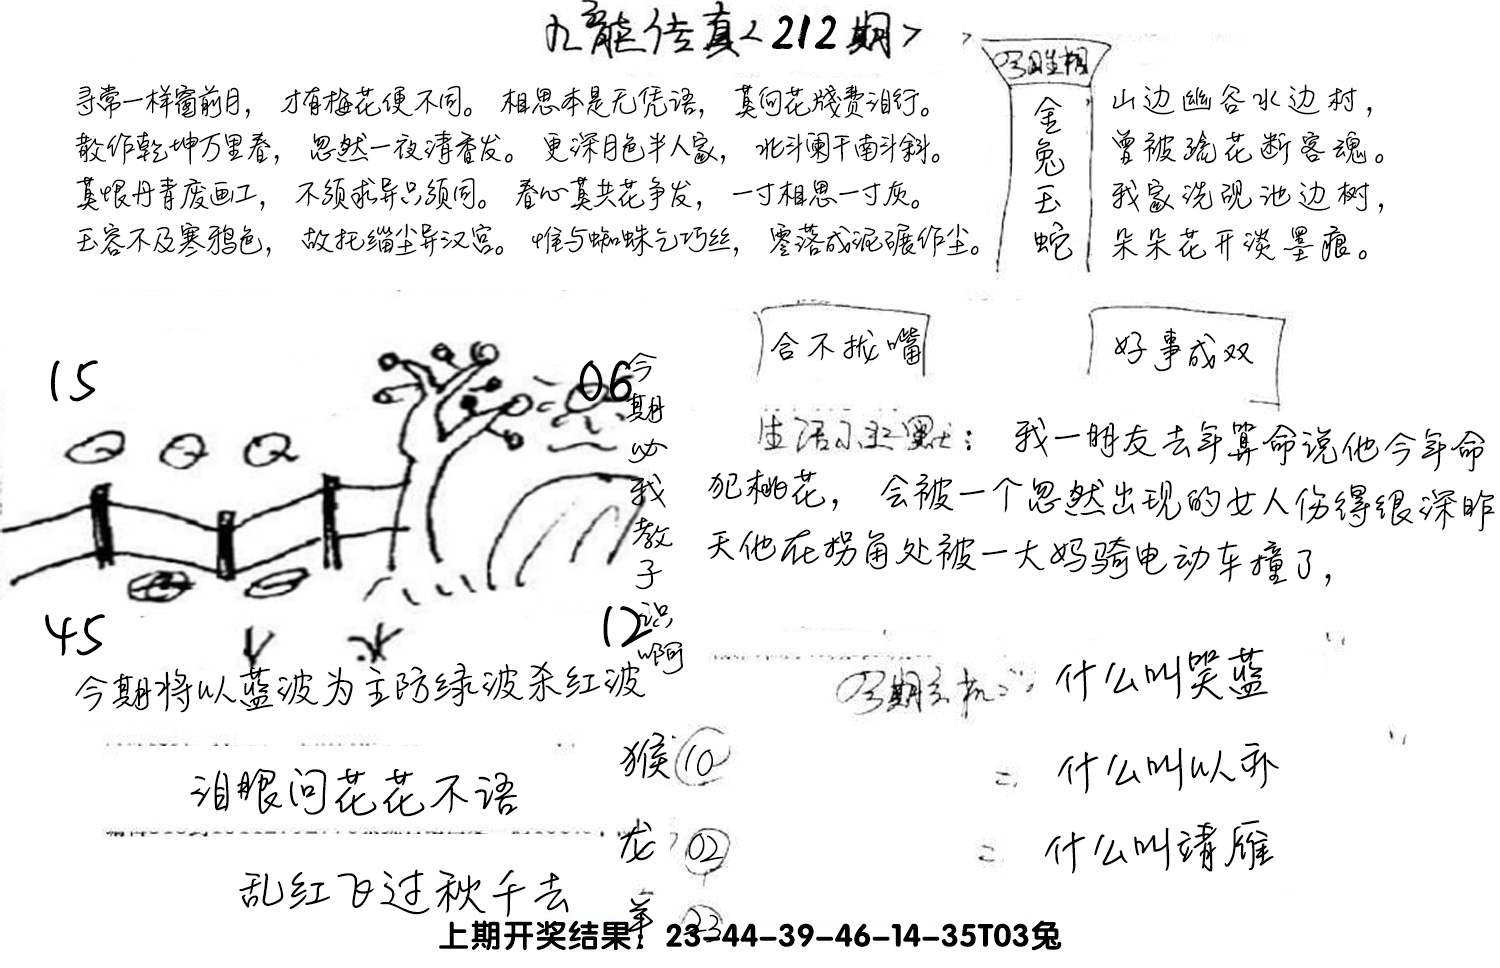 九龙传真<212期>
寻常一样窗前月，才有梅花便不同。相思本是无凭语，莫向花牋费泪行。
散作乾坤万里春，忽然一夜清香发。更深月色半人家，北斗阑干南斗斜。
莫恨丹青废画工，不须求异只须同。春心莫共花争发，一寸相思一寸灰。
玉容不及寒鸦色，故托缁尘异汉宫。惟与蜘蛛乞巧丝，零落成泥碾作尘。
金兔玉蛇
山边幽谷水边村，
曾被疏花断客魂。
我家洗砚池边树，
朵朵花开淡墨痕。
合不拢嘴
好事成双
15
06
45
12
今期必我教子识啊
生活小幽默：我一朋友去年算命说他今年命
犯桃花，会被一个忽然出现的女人伤得很深昨
天他在拐角处被一大妈骑电动车撞了，
今期将以蓝波为主防绿波杀红波
泪眼问花花不语
乱红飞过秋千去
猴10
龙02
羊23
今期玄机：什么叫哭蓝
= 什么叫以
= 什么叫靖雁
上期开奖结果：23-44-39-46-14-35T03兔